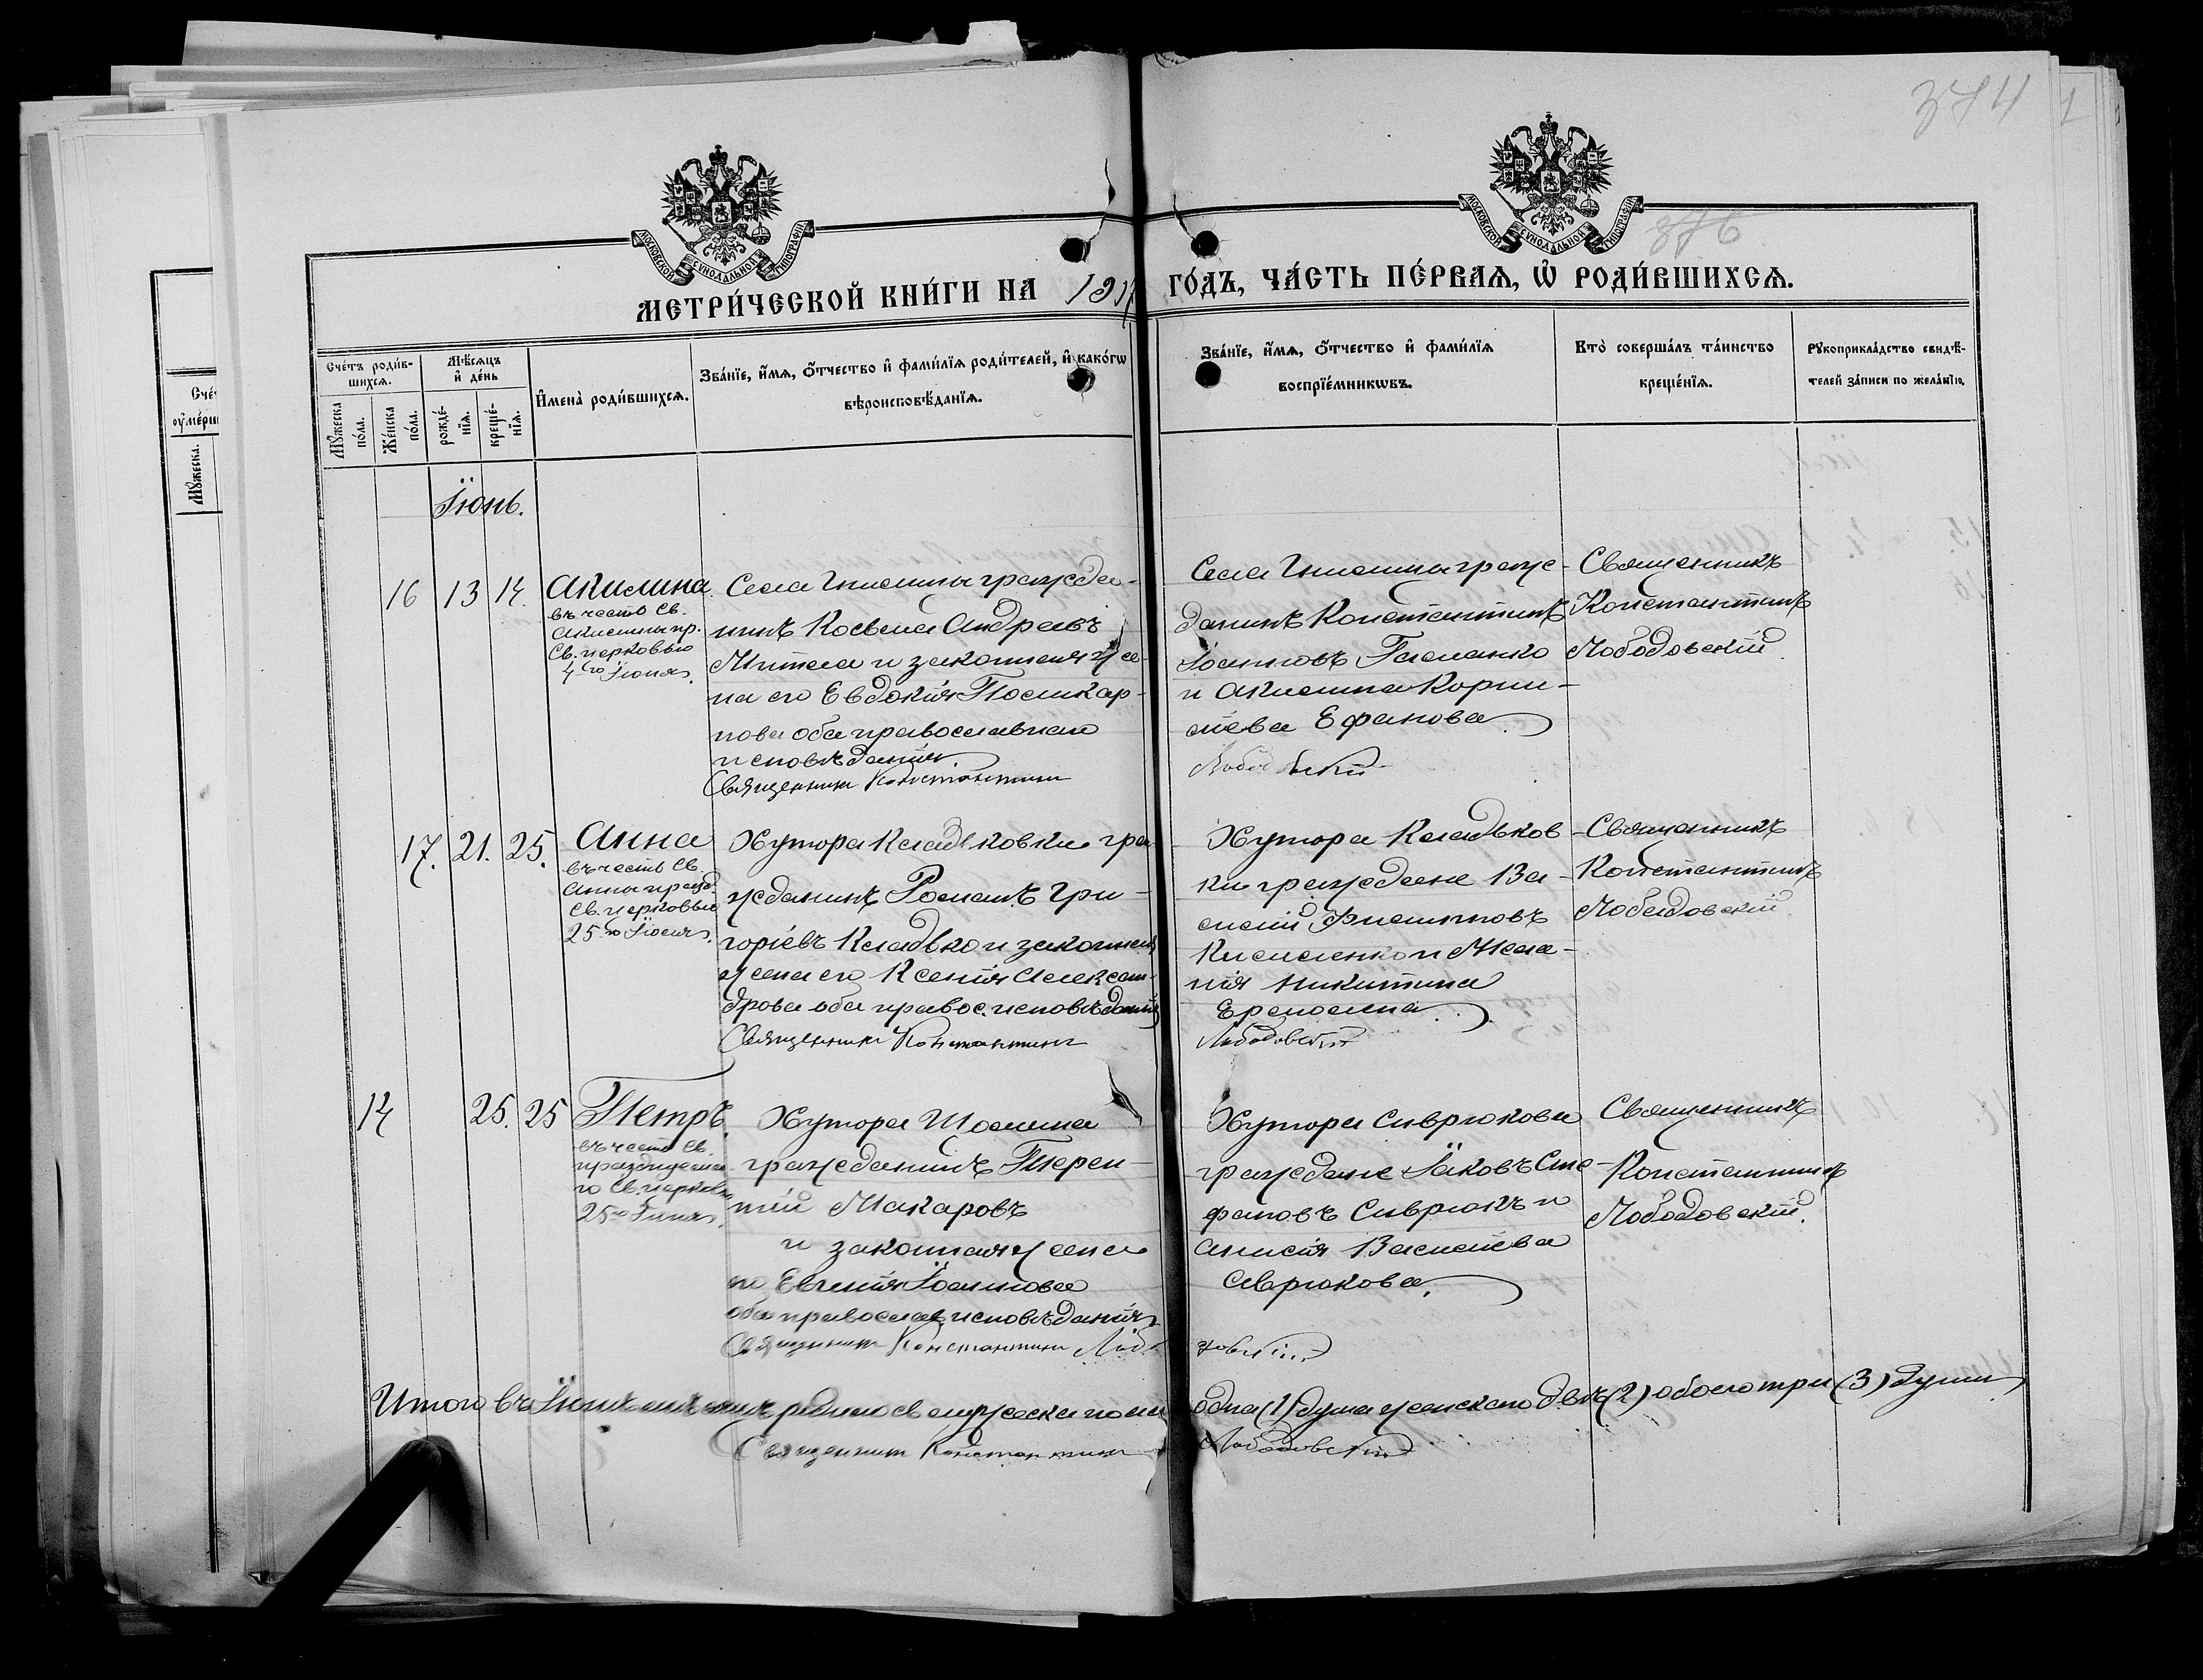 374
1
376
МОСКОВСКОЙ СѴНОДАЛЬНОЙ ТИПОГРАФІИ
МОСКОВСКОЙ СѴНОДАЛЬНОЙ ТИПОГРАФІИ
МЕТРИ́ЧЕСКОЙ КНИ́ГИ НА 1917 ГО́ДЪ, ЧА́СТЬ ПЕ́РВАѦ, Ѽ РОДИ́ВШИХСѦ.
Сче́тъ роди́в-
шихсѧ.
Мꙋ́жеска
по́ла.
Же́нска
по́ла.
Мѣ́сѧцъ
и҆ де́нь
рожде́-
нїѧ.
креще́-
нїѧ.
И҆мена̀ роди́вшихсѧ.
Зва́нїе, и҆́мѧ, ѻ҆́тчество и҆ фами́лїѧ роди́телей, и҆ како́гѡ
вѣроисповѣ́данїѧ.
Зва́нїе, и҆́мѧ, ѻ҆́тчество и҆ фами́лїѧ
воспрїе́мникѡвъ.
Кто̀ соверша́лъ та́инство
креще́нїѧ.
Рꙋкоприкла́дство свидѣ́-
телей за́писи по жела́нїю.
Мꙋ́жеска.
Іюнь.
16 13 14.
Акилина
въ честь Св.
Акилины пр.
Св. церковью
Іюня.
Села Гнилицы гражда-
нинъ Косьма Андреевъ
Мител и законная же-
на его Евдокія Поликар-
пова оба православнаго
исповѣданія.
Священникъ Константинъ
Села Гнилицы граж-
данинъ Константинъ
Іоанновъ Галанко
и Акилина Корни-
лїева Ефанова
Лободовскій
Священникъ
Константинъ
Лободовскій
17. 21. 25.
Анна
въ честь Св.
Анны празд.
Св. церковью
25го Іюля.
Хутора Кладьковки гра-
жданинъ Романъ Гри-
горіевъ Кладько и законная
жена его Ксенія Алексан-
дрова оба правос. исповѣданія
Священникъ Константинъ
Хутора Кладьков-
ки граждане Ва-
силій Филипповъ
Кисиленко и Мела-
нія Никитина
Лободовскій
Священникъ
Константинъ
Лободовскій
14 25. 25
Петръ
въ честь Св.
празднуема-
го Св. церковью
25го Іюня.
Хутора
гражданинъ Терен-
тій Макаровъ
и законная жена
его Евгенія Іоаннова
оба православ. исповѣданія
Священникъ Константинъ Лобо-
Хутора Сиврюкова
граждане Іаковъ Сте-
фановъ Сиврюкъ и
Анисія Василіева
Сиврюкова.
довскій
Священникъ
Константинъ
Лободовскій.
Итого въ Іюнѣ мѣсяцѣ родилось мужеска пола одна (1) душа женскаго двѣ (2) обоего три (3) души
Священникъ Константинъ Лободовскій